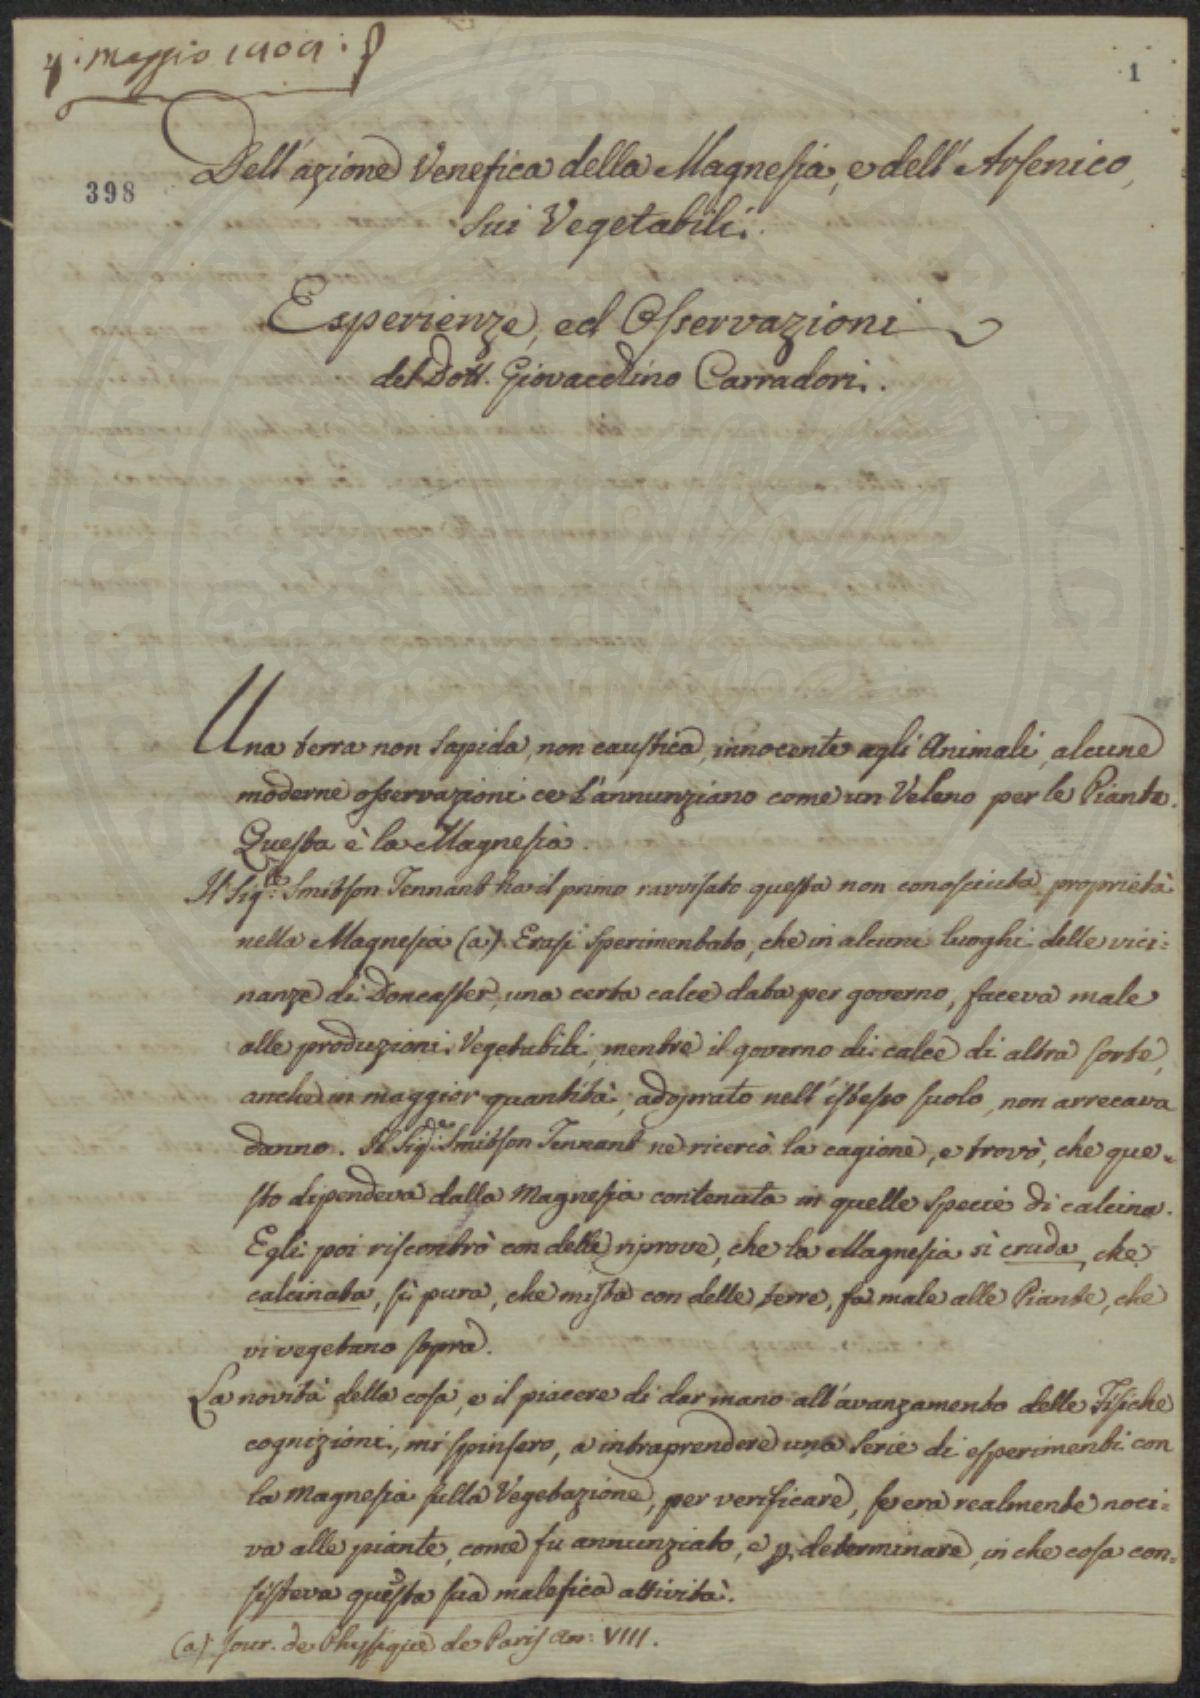 Maggio
1
398
Dell'azione Venefica della Magnesia, e dell'Arsenico,
sui Vegetabili.
Esperienze, ed Osservazioni
del Dott. Giovacchino Carradori.
Una terra non sapida, non caustica, innocente agli Animali, alcune
moderne osservazioni ce l'annunziano come un Veleno per le Piante.
Questa è la Magnesia.
Il Sig.re Smitson Tennant ha il primo ravvisato questa non conosciuta proprietà
nella Magnesia (a). Erasi sperimentato, che in alcuni luoghi delle vici=
nanze di Doncaster, una certa calce data per governo, faceva male
alle produzioni Vegetabili, mentre il governo di calce di altra sorte,
anche in maggior quantità, adoprato nell'istesso suolo, non arrecava
danno. Il Sig.re Smitson Tennant ne ricercò la cagione, e trovò, che que=
sto dipendeva dalla Magnesia contenuta in quelle specie di calcina.
Egli poi riscontrò con delle riprove, che la Magnesia sì cruda, che
calcinata, sì pura, che mista con delle terre, fa male alle Piante, che
vi vegetano sopra.
La novità della cosa, e il piacere di dar mano all'avanzamento delle Fisiche
cognizioni, mi spinsero, a intraprendere una serie di esperimenti con
la Magnesia sulla Vegetazione, per verificare, se era realmente noci=
va alle piante, come fu annunziato, e p. determinare, in che cosa con=
sisteva questa sua malefica attività.
(a) Jour. de Physique de Paris an: VIII.
GENI AVGE